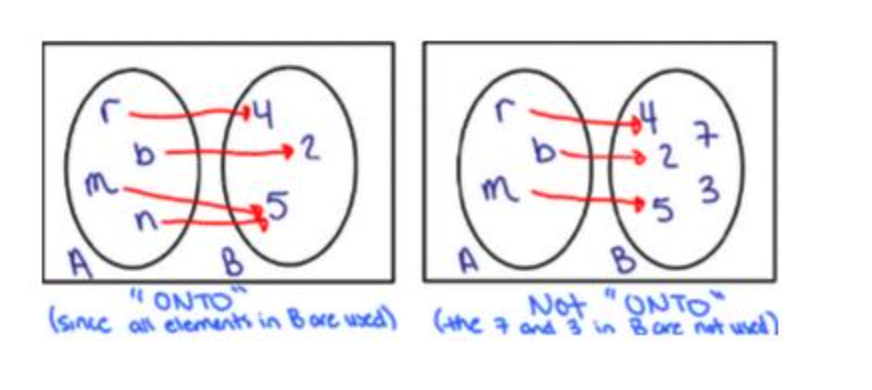 r 4
b 2
m
n 5
A B
"ONTO"
(since all elements in B are used)
r 4 7
b 2
m 5 3
A B
Not "ONTO"
(the 7 and 3 in B are not used)